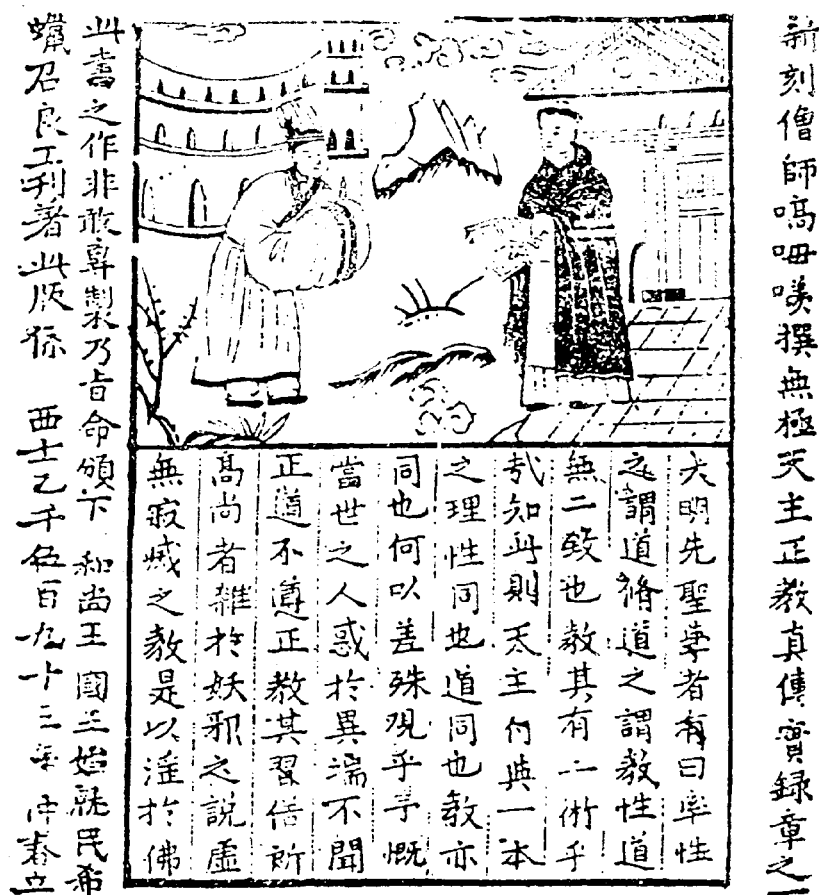 新刻僧師嗃呣㗨撰無極天主正教真傳實錄章之一
大明先聖學者有曰率性
之謂道脩道之謂教性道
無二致也教其有二術乎
哉知此則天主付與一本
之理性同也道同也教亦
同也何以差殊观乎予慨
當世之人惑於異端不聞
正道不遵正教其習俗所
高尚者雜於妖邪之說虛
無寂滅之教是以淫於佛
此書之作非敢專制乃旨命頒下 和尚王 國王始就民希
蠟召良工刊著此版係 西士乙千伍百九十三年仲春立